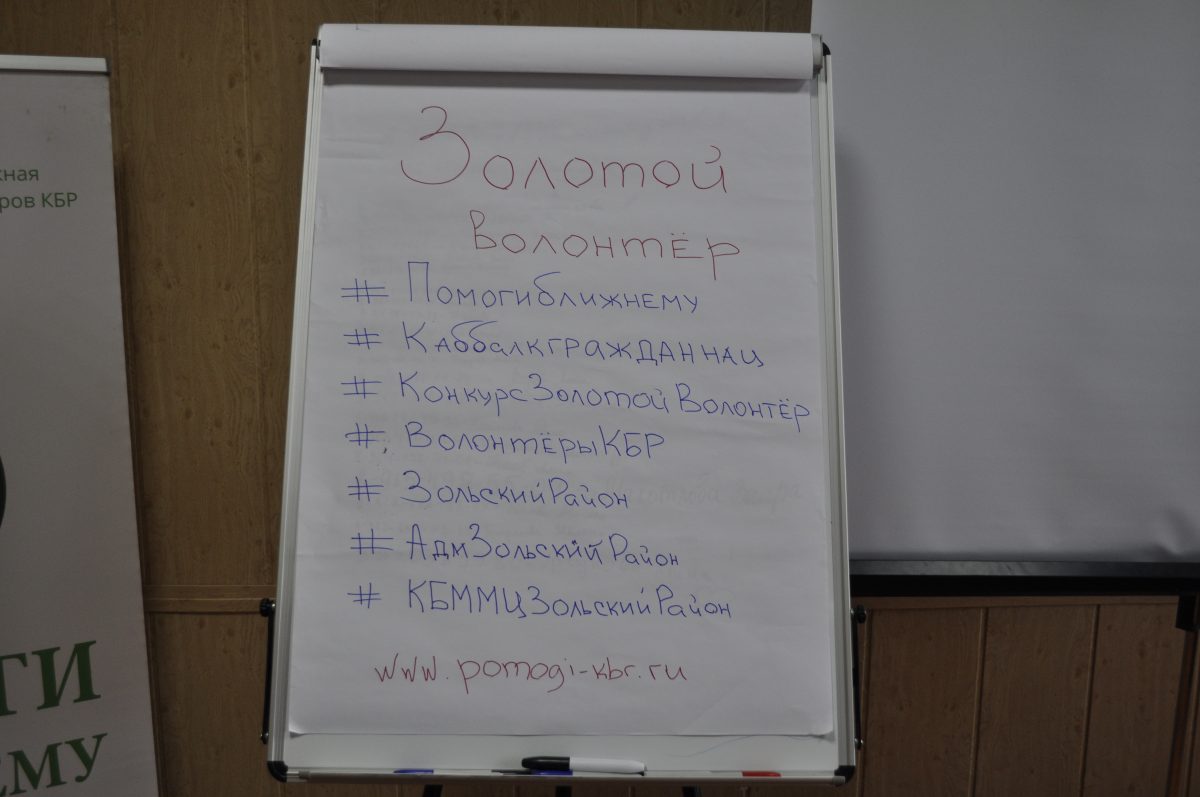 жная
ров КБР
ТИ
ЕМУ
Золотой
волонтёр
# Помогиближнему
# Каббалкгражданнац
# КонкурсЗолотойВолонтёр
# ВолонтёрыКБР
# ЗольскийРайон
# АдмЗольскийРайон
# КБММЦЗольскийРайон
www.pomogi-kbr.ru